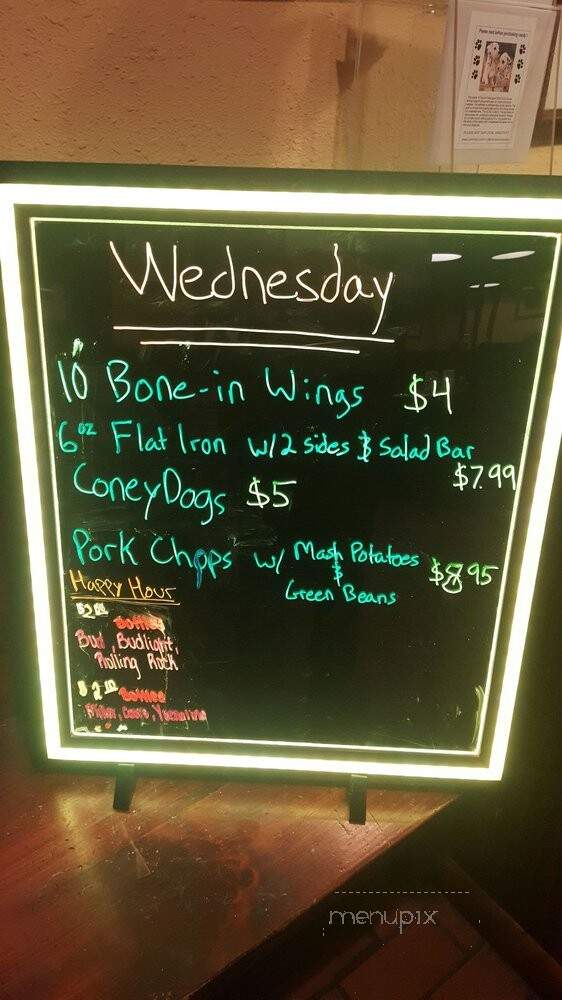 Wednesday
10 Bone-in Wings $4
6oz Flat Iron w/2 sides & Salad Bar
$7.99
Coney Dogs $5
Pork Chops w/ Mash Potatoes
&
Green Beans
$8.95
Happy Hour
Bottles
Bud, Budlight,
Rolling Rock
Bottles
Miller, Coors, Yuengling
menupix